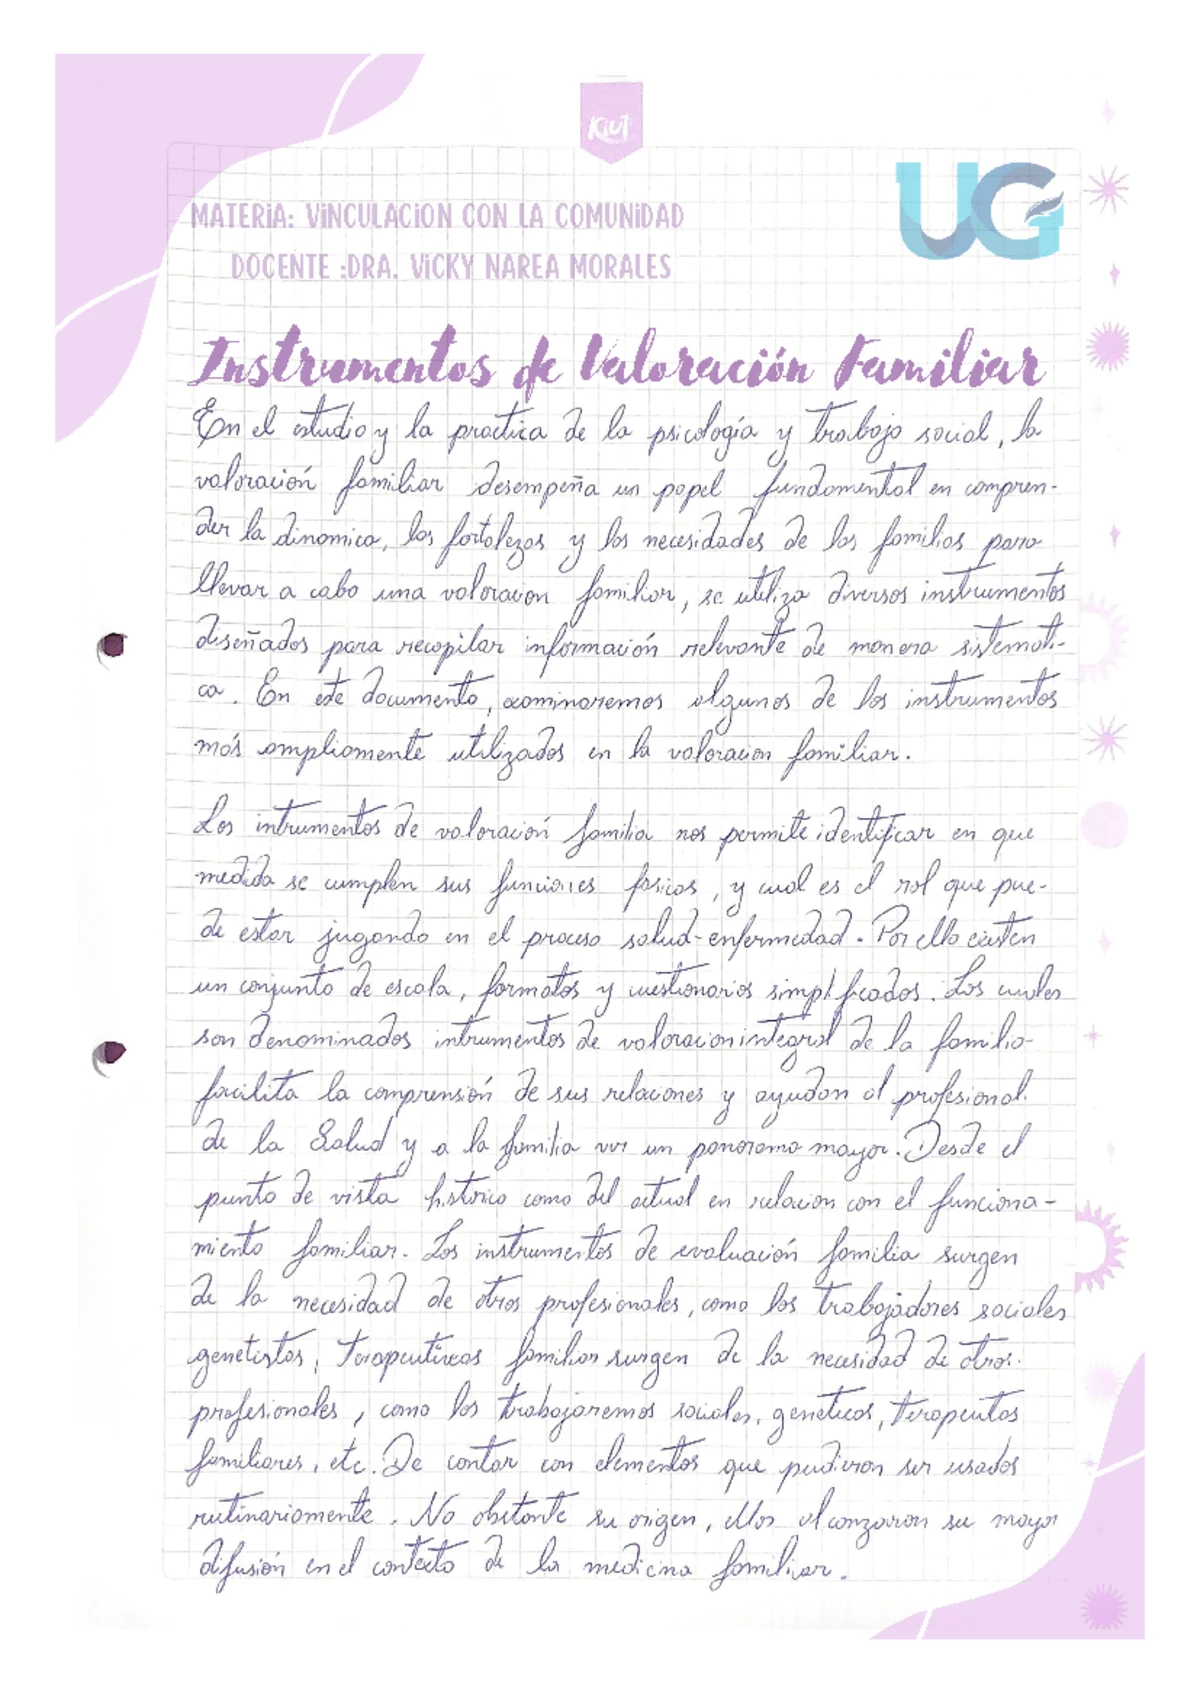 Kiut
UG
MATERIA: VINCULACION CON LA COMUNIDAD
DOCENTE :DRA. VICKY NAREA MORALES
Instrumentos de Valoración Familiar
En el estudio y la practica de la psicología y trabajo social, la
valoración familiar desempeña un papel fundamental en compren-
der la dinamica, las fortalezas y las necesidades de las familias para
llevar a cabo una valoracion familiar, se utiliza diversos instrumentos
diseñados para recopilar información relevante de manera sistemati-
ca. En este documento, examinaremos algunos de los instrumentos
más ampliamente utilizados en la valoracion familiar.
Los intrumentos de valoración familia nos permite identificar en que
medida se cumplen sus funciones fasicas, y cual es el rol que pue-
de estar jugando en el proceso salud-enfermedad. Por ello existen
un conjunto de escala, formatos y cuestionarios simplificados. Los cuales
son denominados intrumentos de valoracion integral de la familia
facilita la comprensión de sus relaciones y ayudan al profesional
de la Salud y a la familia ver un panorama mayor. Desde el
punto de vista historico como del actual en relacion con el funciona-
miento familiar. Los instrumentos de evaluación familia surgen
de la necesidad de otros profesionales, como los trabajadores sociales
genetistas, Terapeuticos familiar surgen de la necesidad de otros
profesionales, como los trabajaremos sociales, geneticos, terapeutas
familiares, etc. De contar con elementos que pudieron ser usados
rutinariamente. No obstante su origen, ellos alcanzaron su mayor
difusión en el contexto de la medicina familiar.